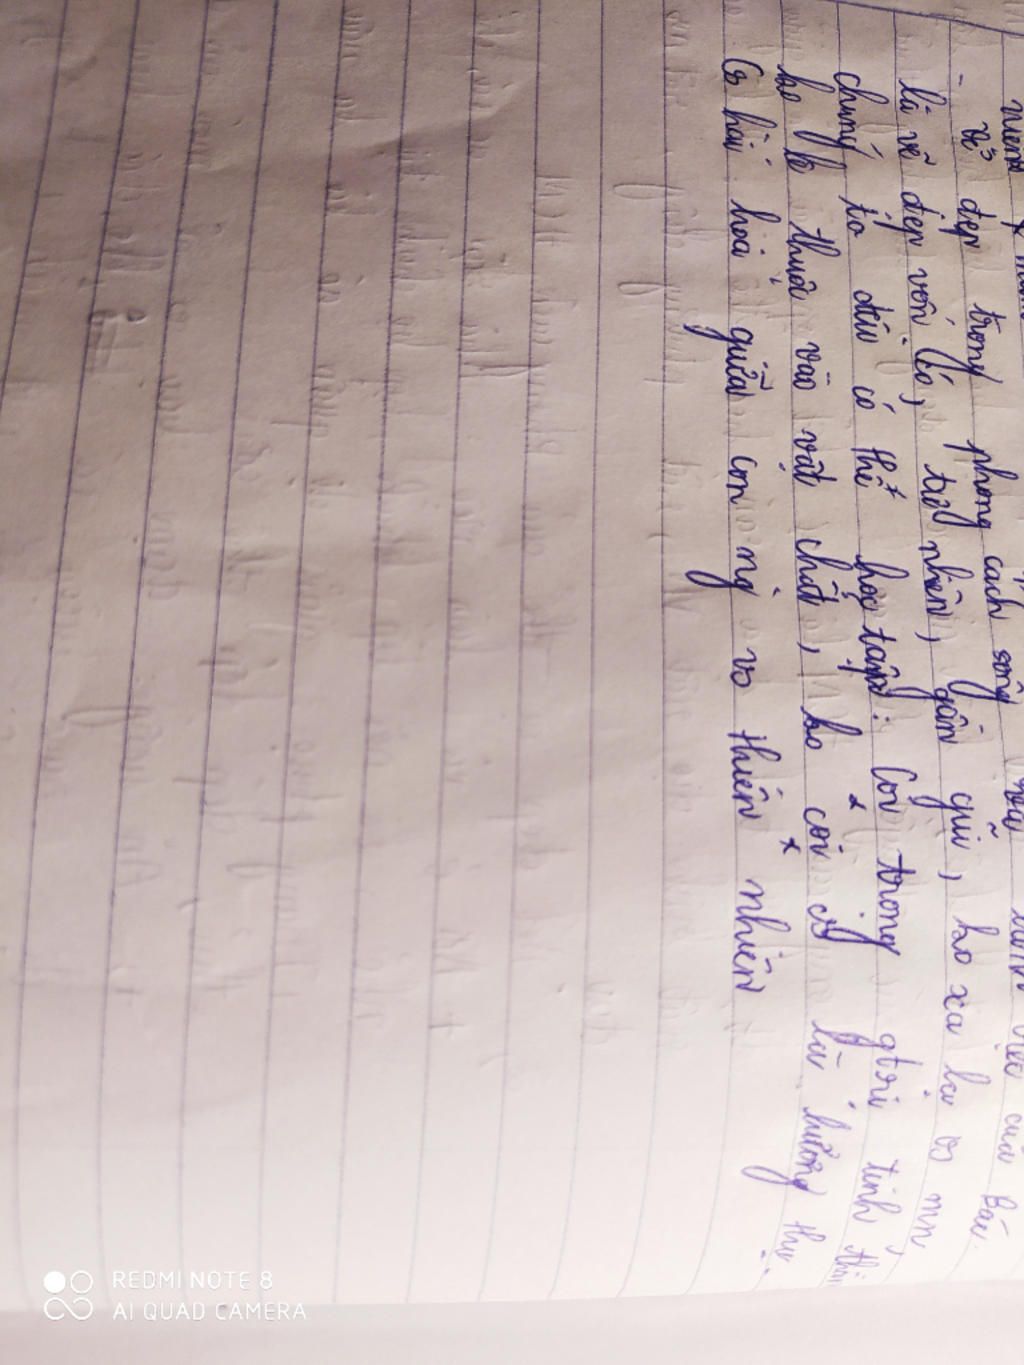 - vẻ đẹp trong phong cách sống
là vẻ đẹp vốn có, tự nhiên, gần gũi, ko xa lạ vs mn
chúng ta đều có thể học tập. Coi trọng gtrị tinh
ko lệ thuộc vào vật chất, ko coi đó là hưởng thụ.
Có hài hoà giữa con ng vs thiên nhiên
của Bác.
REDMI NOTE 8
AI QUAD CAMERA